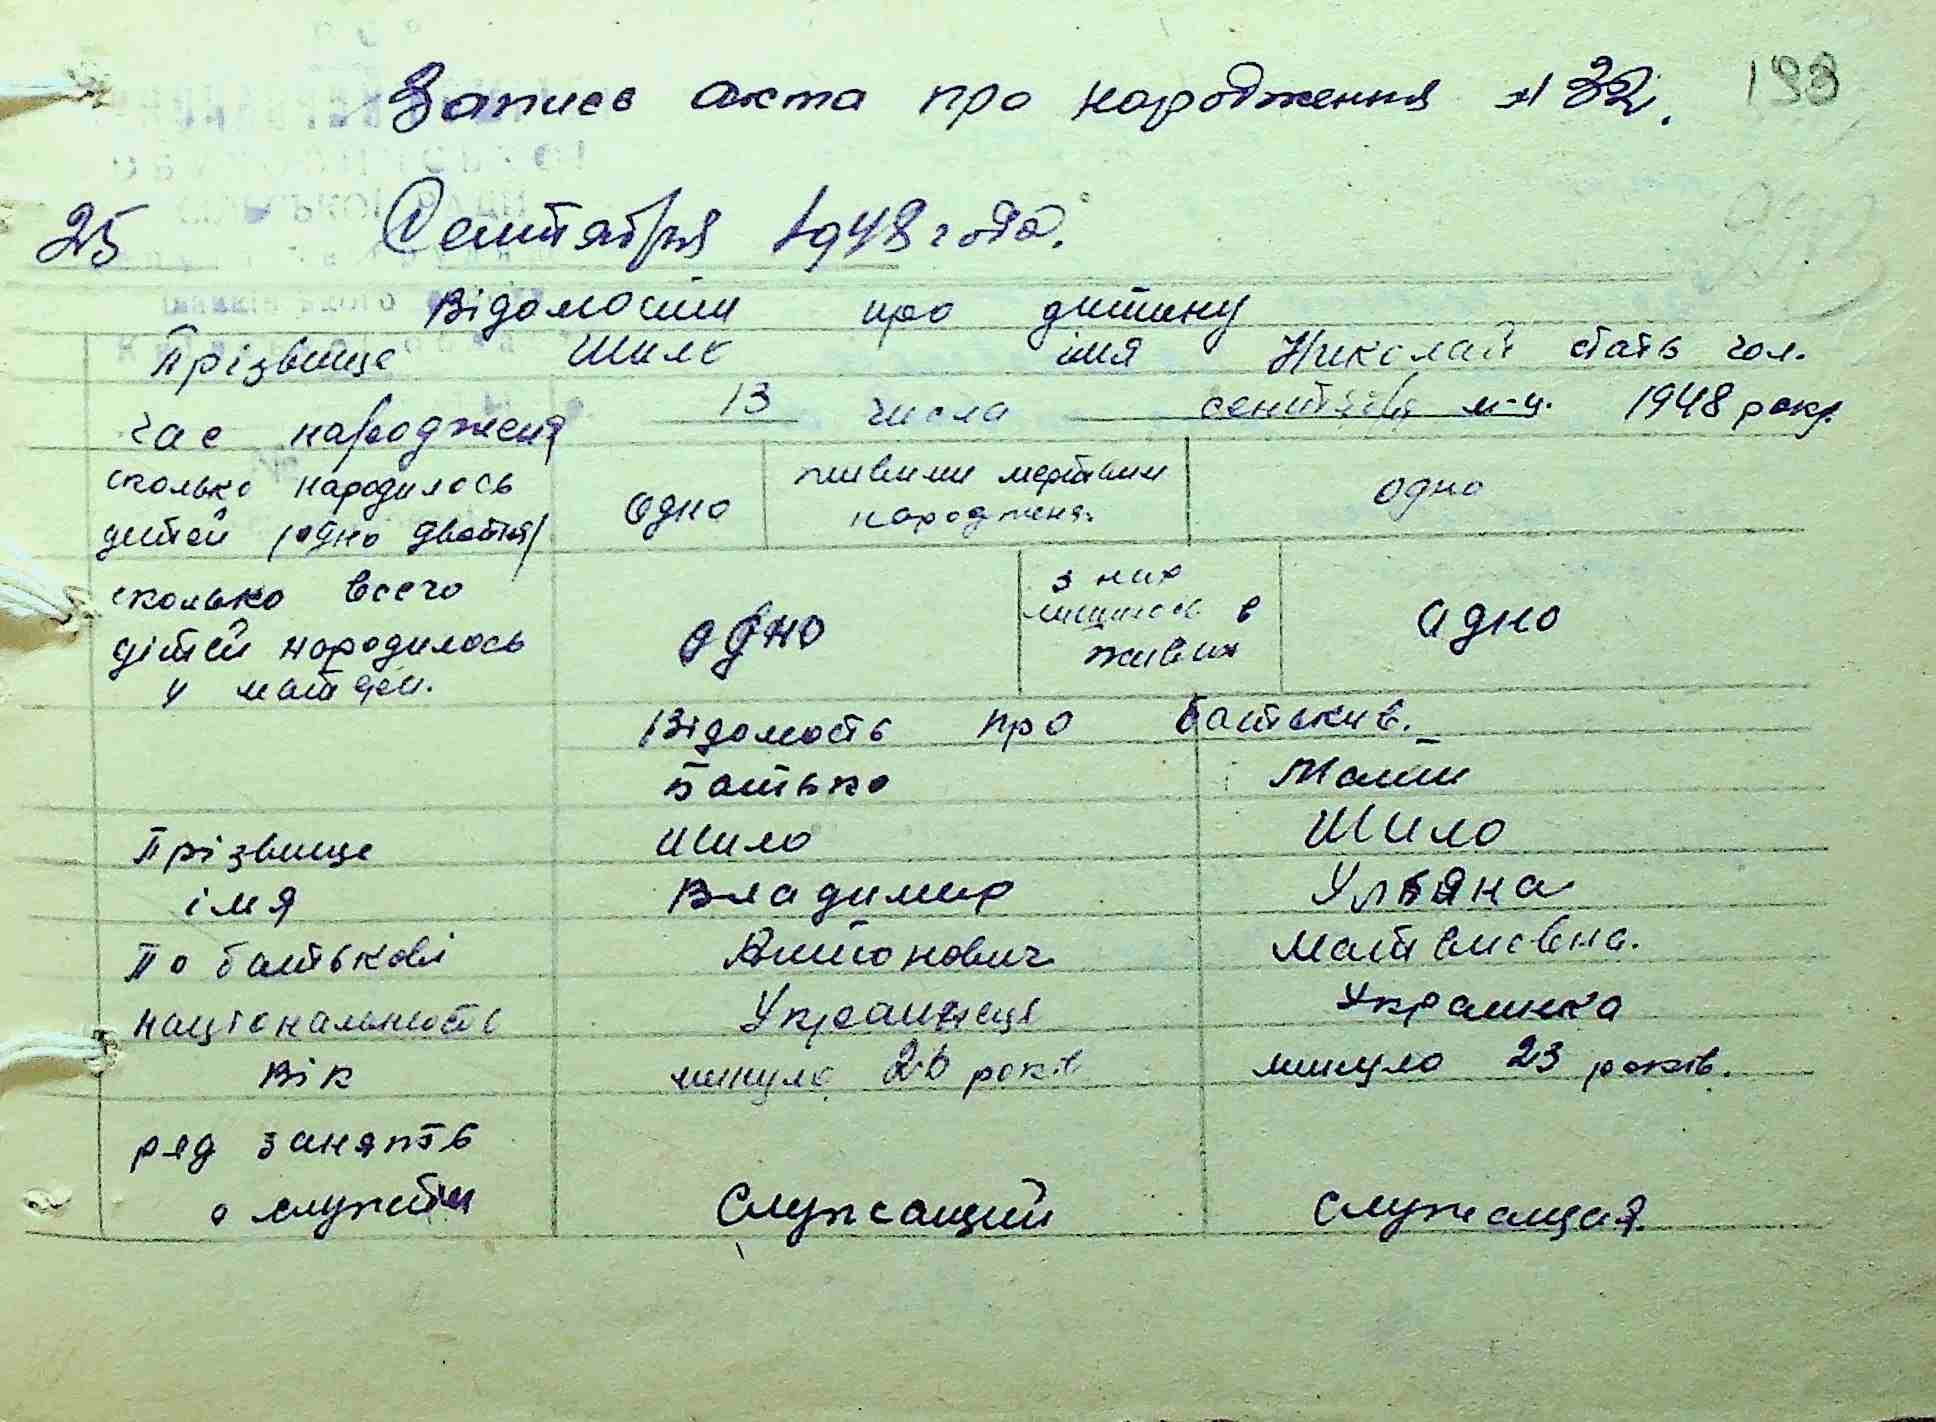 Запись акта про народження № 32. 193
25 Сентября 1948 года.
Відомости про дитину
Прізвище Шило імя Николай стать чол.
час народженя 13 числа сентября м-ц. 1948 року.
сколько народилось дитей /одно двойня/ одно живими мертвими народженя. одно
сколько всего дітей народилось у матери. одно з них лишилось в живих одно
Відомость про батькив.
Батько Мати
Прізвище Шило Шило
імя Владимир Ульяна
По батькові Антонович
національность Украинець Украинка
Вік минуло 26 років минуло 23 років.
ряд занять
о службі Служащий Служащая.